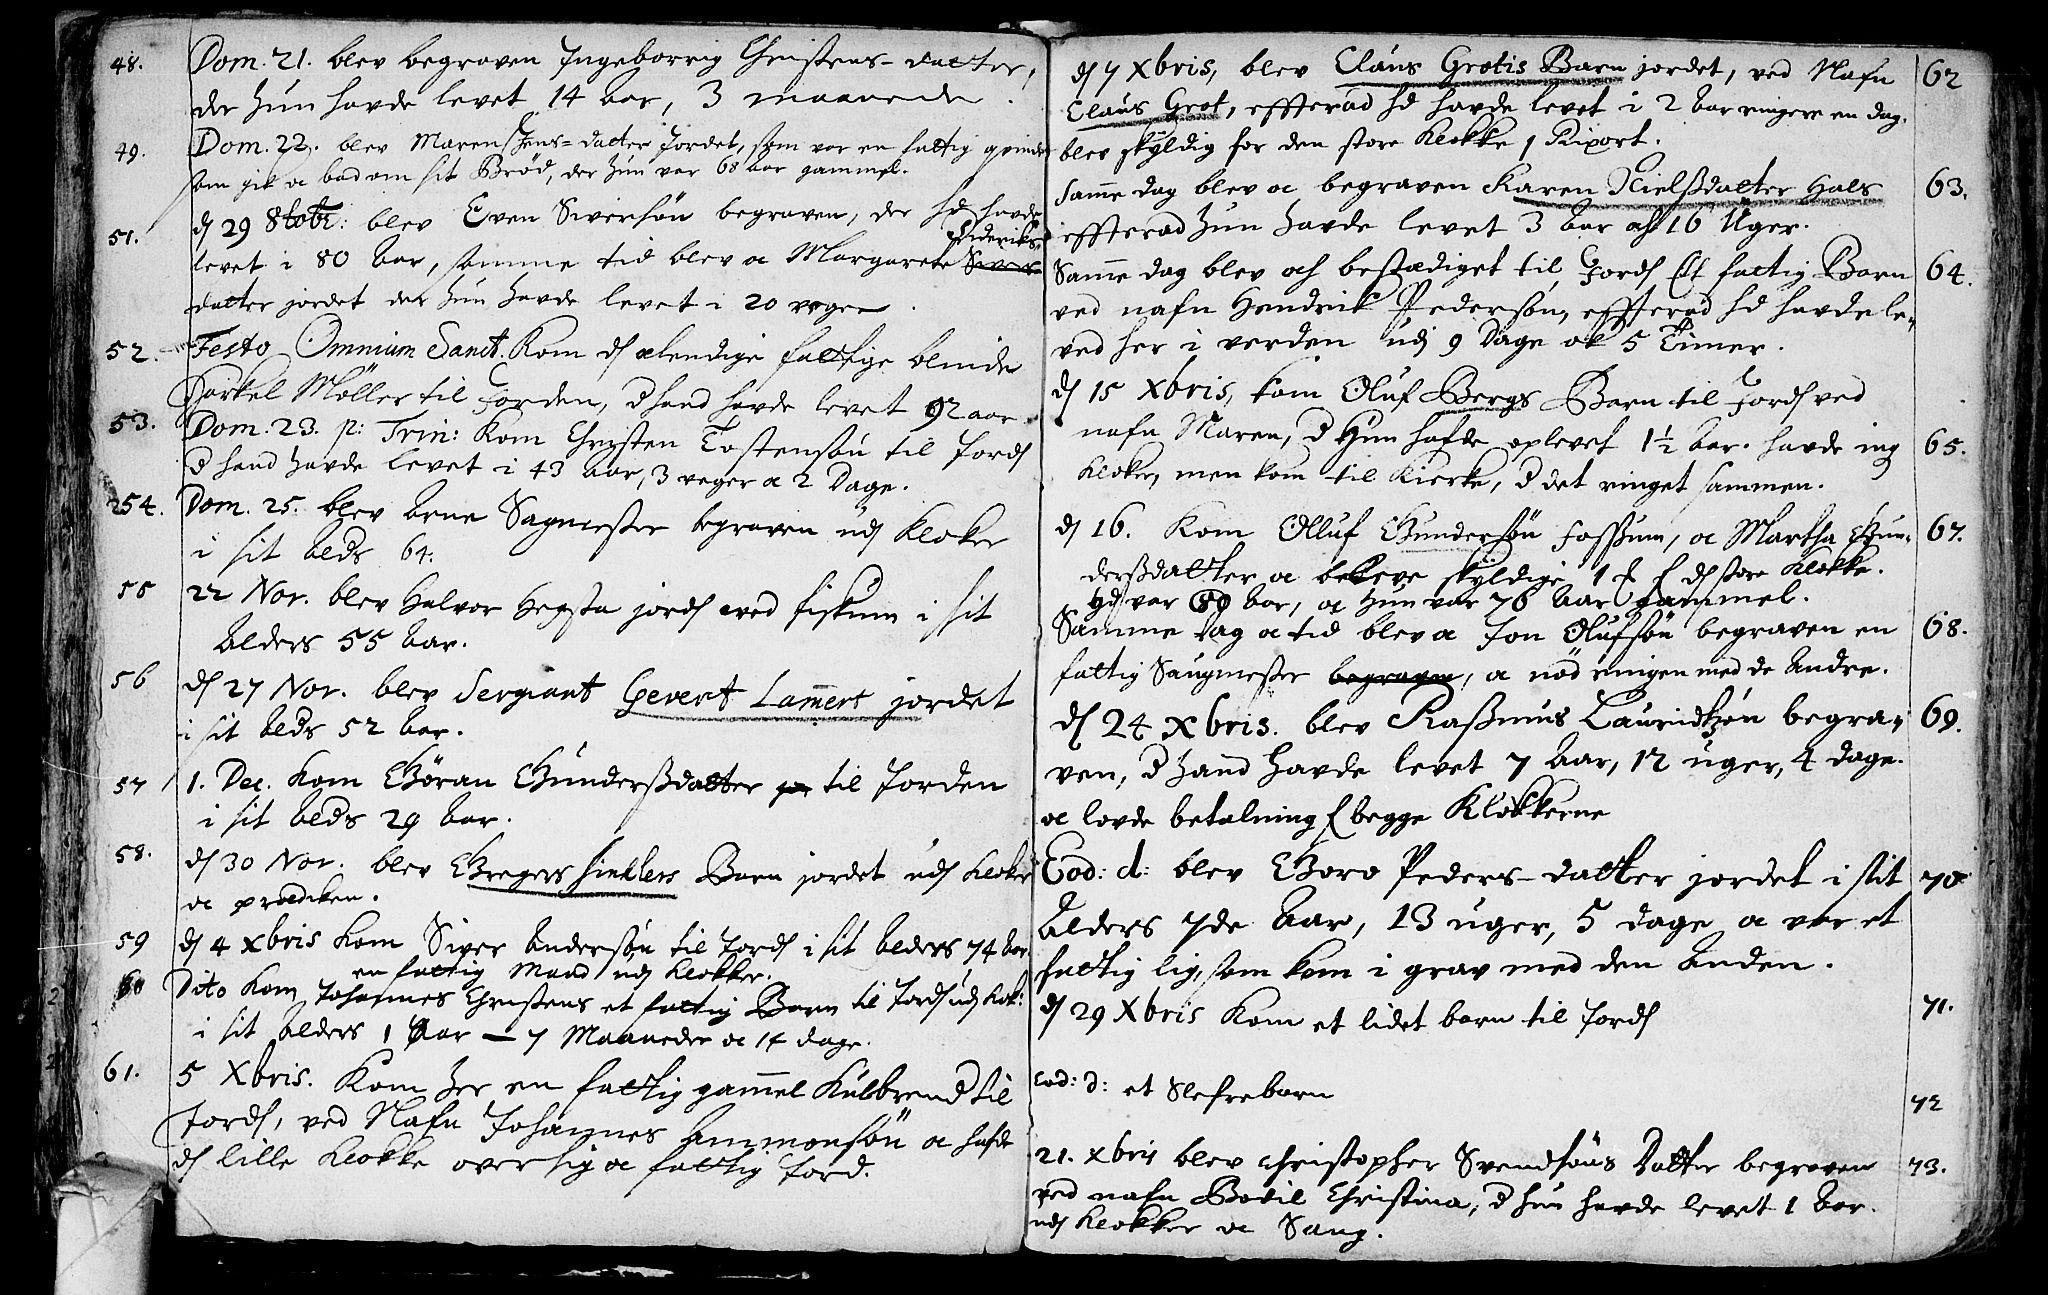 48. Dom. 21. blev begraven Ingeborrig Christens-datter,
der hun havde levet 14 aar, 3 maanede.
49. Dom. 22. blev Maren Jens-datter Jordet, som var en fattig qvinde
som gik oc bad om sit Brød, der hun var 68 aar gammel.
51. d 29 8tobr: blev Even Siversøn begraven, der hd havde
Dideriks
levet i 80 aar, samme tid blev oc Margarete Sivers-
datter jordet der hun havde levet i 20 uger.
52. Festo Omnium Sanct. Kom d elendige fattige blinde
Torkel Møller til Jorden, d hand havde levet 92 aar
53. Dom. 23. p: Trin: Kom Christen Tostensøn til Jord
d hand havde levet i 43 aar, 3 veger oc 2 Dage.
254. Dom. 25. blev Arne Sagmester begraven ud Kloker
i sit Alds 64.
55 22 Nov. blev Halvor Hegsta jord ved fiskum i sit
Alders 55 aar.
56 d 27 Nov. blev Sergiant Gevert Lamers jordet
i sit Alds 52 aar.
57 1. Dec. Kom Gøran Gundersdatter til Jorden
i sit Alds 29 aar.
58. d 30 Nov. blev Gregers Sinklers Barn jordet ud Kloker
oc prædiken.
59 d 4 xbris kom Siver Andersøn til Jord i sit Alders 74 aar
en fattig Mand ud Klokker.
60 Dito kom Johannes Christens et fattig Barn til Jord ud Klok:
i sit Alders 1 Aar – 7 Maaneder oc 14 dage.
61. 5 Xbris. Kom her en fattig gammel Kulbrend til
Jord, ved Nafn Johannes Ammonsøn oc hafde
d lille Klokke over sig oc fattig Jord.
d 7 Xbris, blev Claus Grotis Barn jordet, ved Nafn 62
Claus Grot, effterad hd havde levet i 2 aar ringere en dag.
blev skyldig for den store Klokke 1 Rixort.
Samme dag blev oc begraven Karen Nielsdatter Hals 63.
effterad hun havde levet 3 aar och 16 Uger.
Samme dag blev och bestædiget til Jord Et fattig Barn 64.
ved nafn Hendrik Pedersøn, effterad hd havde le-
ved her i verden udj 9 Dage ok 5 Timer.
d 15 xbris, kom Oluf Bergs Barn til Jord ved
nafn Maren, d Hun hafde oplevet 1½ aar. havde ing 65.
Kloker, men kom til Kierke, d det ringet sammen.
d 16. Kom Olluf Gundersøn Fossum, oc Martha Gun- 67.
dersdatter oc bleve skyldige 1 f d store Klokke.
Hd var 80 aar, oc hun var 76 aar gammel.
Samme Dag oc tid blev oc Jon Olufsøn begraven en 68.
fattig Saugmester begraven, oc nød ringen med de Andre.
d 24 xbris. blev Rasmus Lauridsøn begra- 69.
ven, d hand havde levet 7 aar, 12 uger, 4 dage.
oc lovde betalning f begge Klokkerne
Eod: d: blev Goro Peders-datter jordet i sit 70
Alders 7de aar, 13 uger, 5 dage oc var et
fattig lig, som kom i grav med den Anden.
d 29 Xbris Kom et lidet barn til Jord 71.
Eod: d: et Slefrebarn 72
21. xbris blev Christopher Svendsøns Datter begraven 73.
ved nafn Bodil Christina, d hun havde levet 1 aar.
ud Klokker oc Sang.